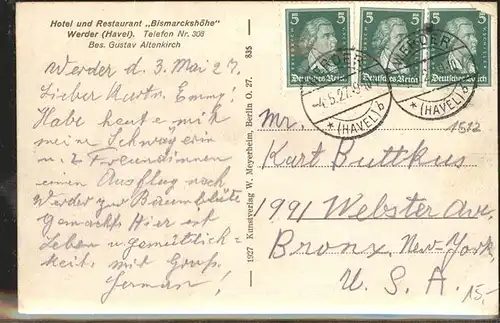 Hotel und Restaurant „Bismarckshöhe"
Werder (Havel). Telefon Nr. 308
Bes. Gustav Altenkirch
Werder d. 3. Mai 27.
Lieber Kurt u. Emmy!
Habe heute mit
meine Schwägerin
u. 2 Freundinnen
einen Ausflug nach
Werder zur Baumblüte
gemacht. Hier ist
Leben u. gemütlich-
keit. mit Gruß
Herman!
835
1927 Kunstverlag W. Meyerheim, Berlin O. 27.
5 5
Deutsches Reich
5 5
Deutsches Reich
5 5
Deutsches Reich
WERDER
-4.5.27.
* (HAVEL) b
WERDER
* (HAVEL) b
1572
Mr.
Kurt Buttkus
1991 Webster Av.
Bronx, New-York,
U. S. A.
15,-